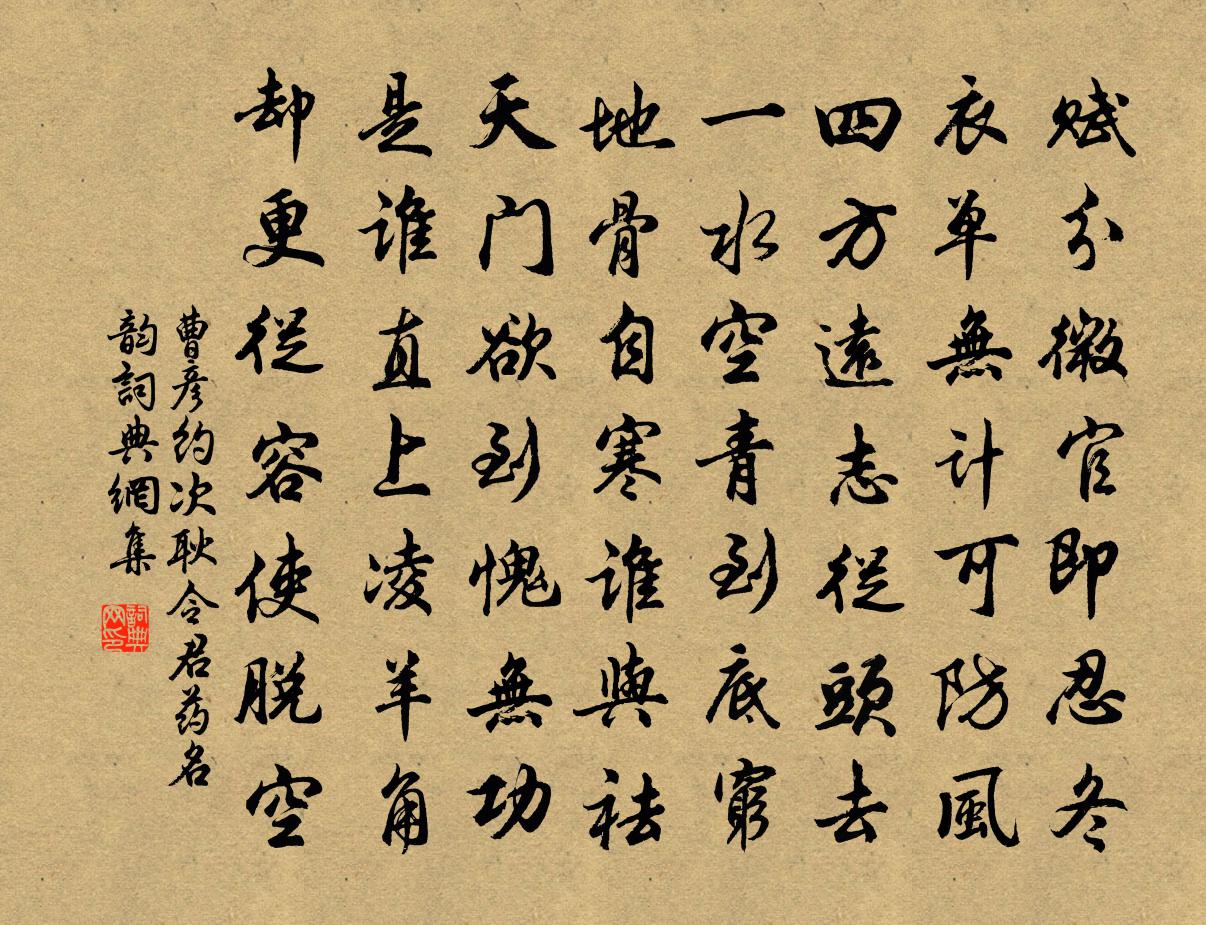 賦分微官即忍冬
衣单無计可防風
四方遠志從頭去
一水空青到底窮
地骨自寒谁與祛
天门欲到愧無功
是谁直上凌羊角
却更從容使脱空
曹彦约次耿令君药名
韵詞典網集
詞典网印